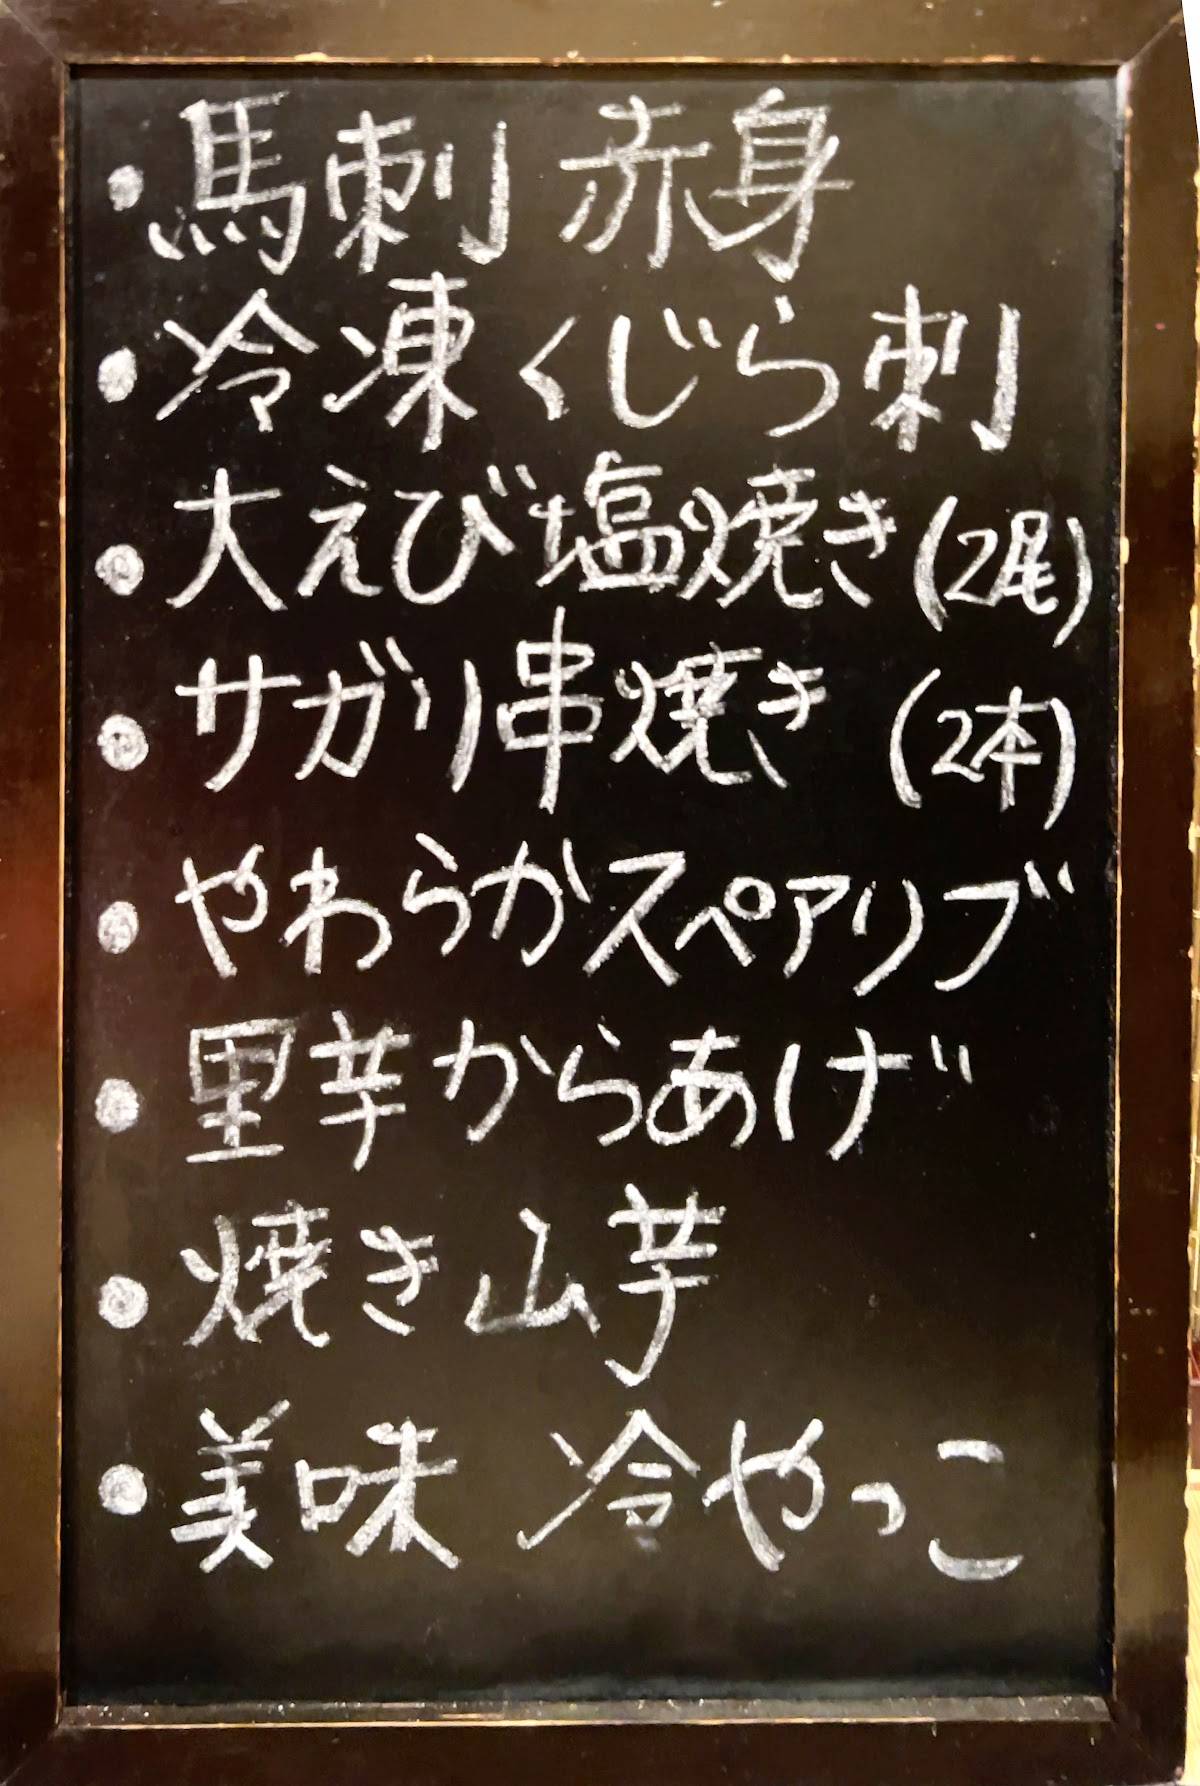 ・馬刺 赤身
・冷凍くじら刺
・大えび塩焼き(2尾)
・サガリ串焼き (2本)
・やわらかスペアリブ
・里芋からあげ
・焼き山芋
・美味 冷やっこ